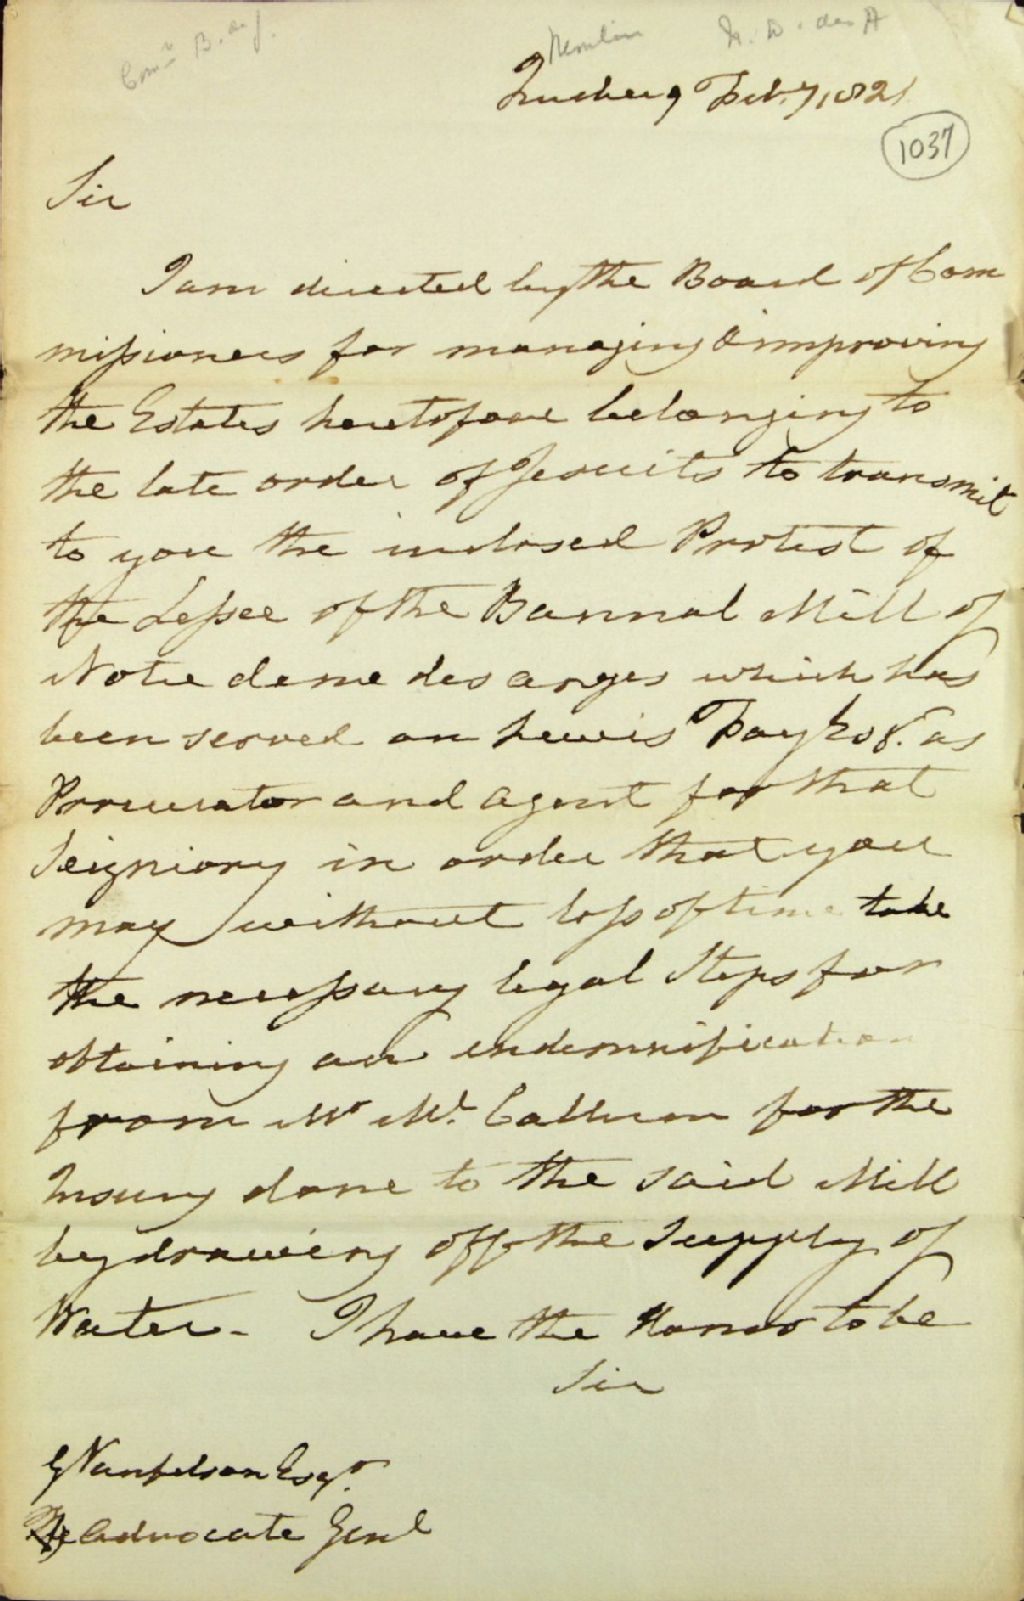 Comrs B. des J.
Moulin N. D. des A
Quebec 9 Feby 1821
1037
Sir
I am directed by the Board of Com
missioners for managing & improving
the Estates heretofore belonging to
the late order of Jesuits to transmit
to you the inclosed Protest of
the Lessee of the Bannal Mill of
Notre dame des anges which has
been served on Lewis Foy Esqr. as
Procurator and agent for that
Seigniory in order that you
may without loss of time take
the necessary legal Steps for
obtaining an indemnification
from Mr Mc. Callum for the
Injury done to the said Mill
by drawing off the Supply of
Water - I have the Honor to be
Sir
G Vanfelson Esqr.
Advocate Genl